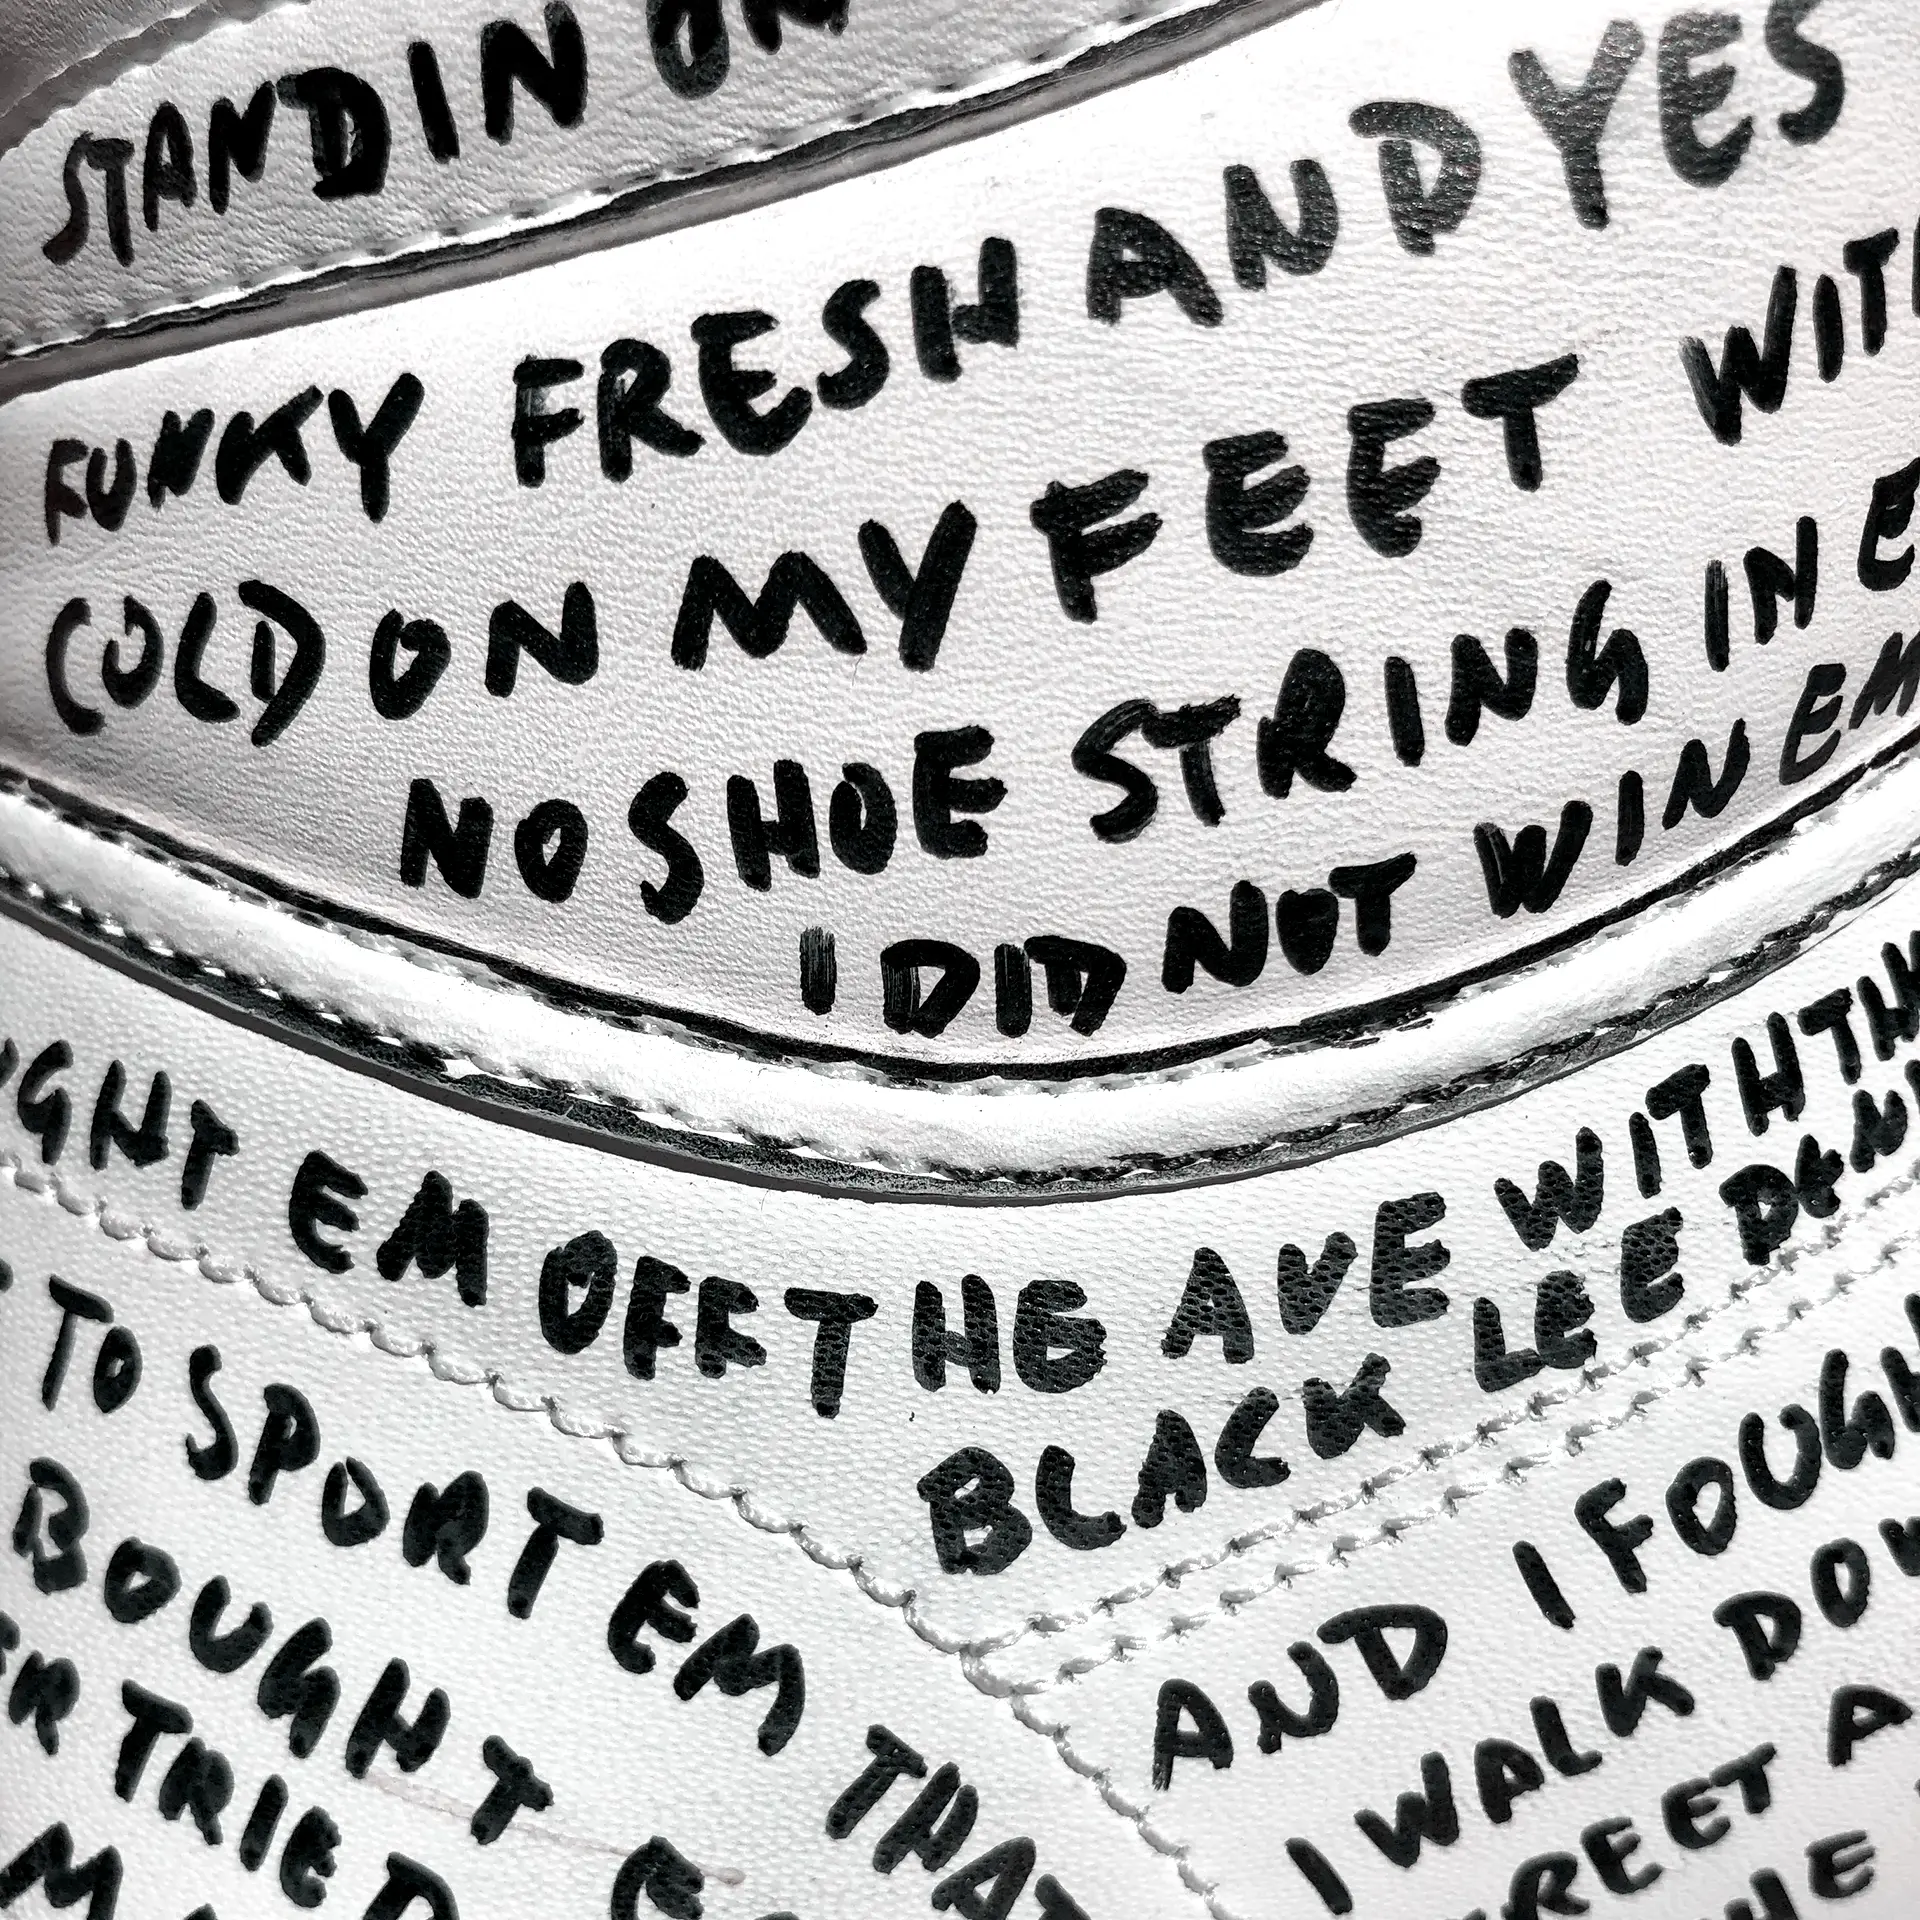 STANDIN ON
FUNKY FRESH AND YES
COLD ON MY FEET WITH
NO SHOE STRING IN E
I DID NOT WIN EM
GHT EM OFF THE AVE WITH TH
BLACK LEE DEN
TO SPORT EM THAT
BOUGHT
ER TRIED
AND I FOUGH
I WALK DOW
REET A
HE